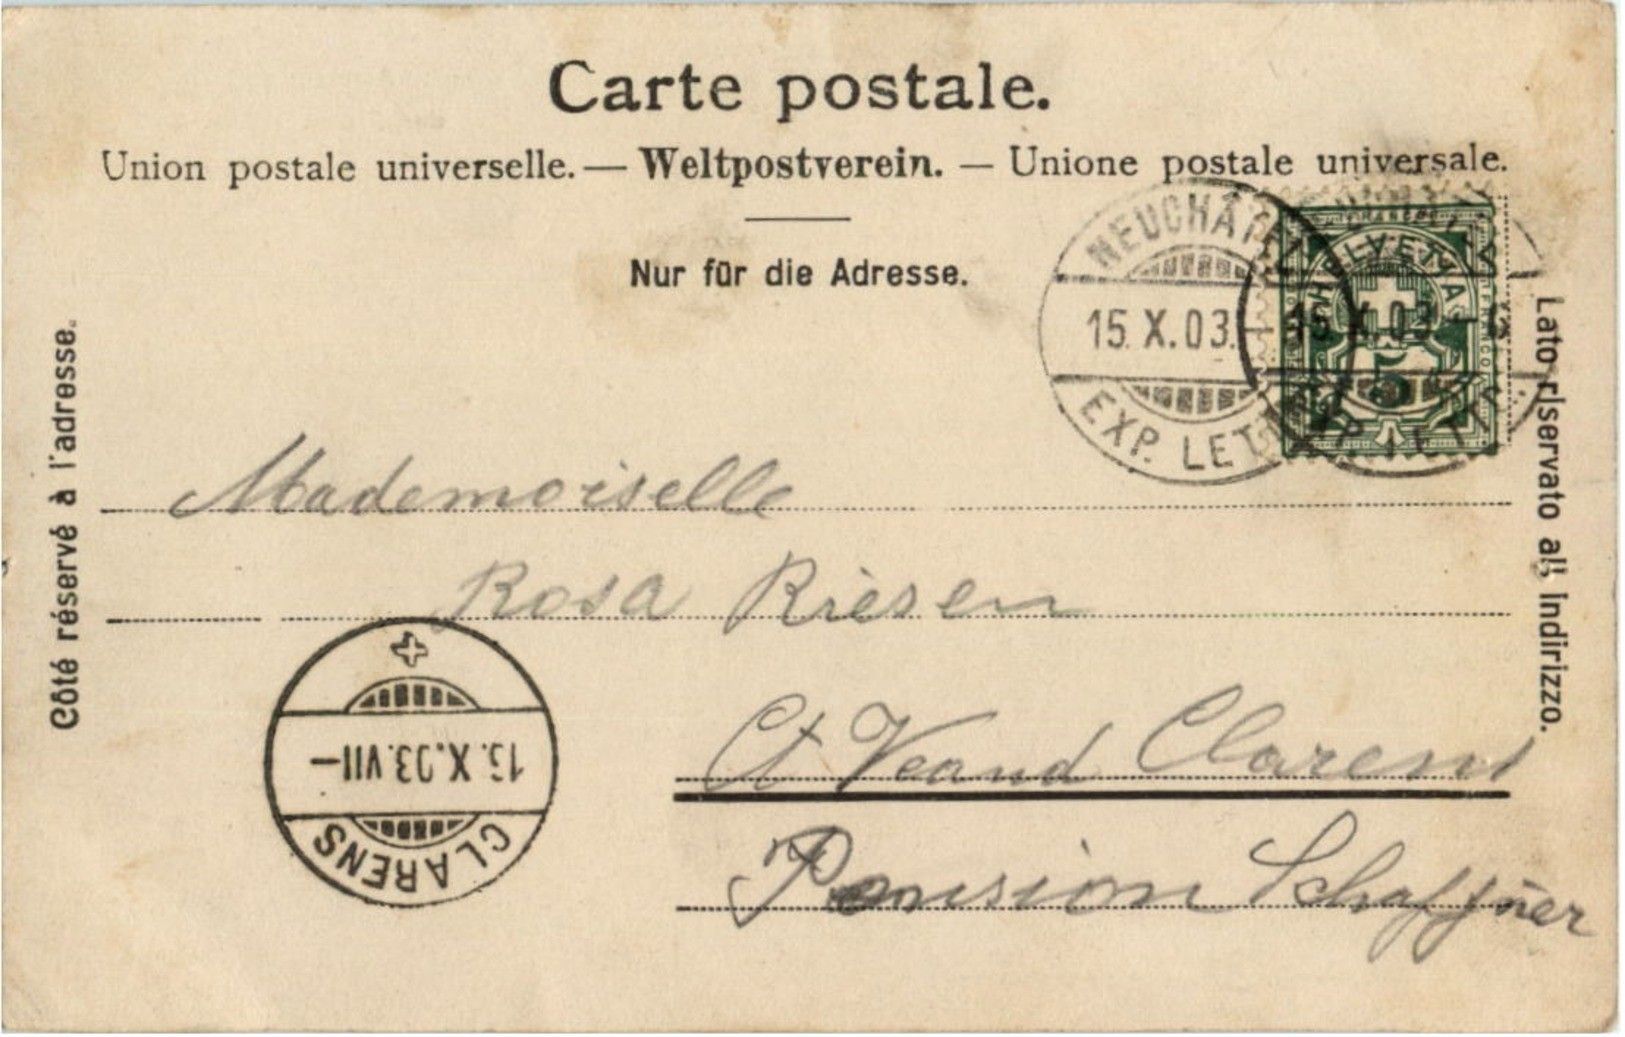 Carte postale.
Union postale universelle. — Weltpostverein. — Unione postale universale.
Nur für die Adresse.
Côté réservé à l'adresse.
Lato riservato all' indirizzo.
NEUCHÂTEL
15. X. 03.
EXP. LETT.
FRANCO
HELVETIA
FRANCO
5
15. X. 03
EXP. LETT.
Mademoiselle
Rosa Riesen
Ct Veand Clarens
Pension Schaffner
CLARENS
15. X. 03. VII-